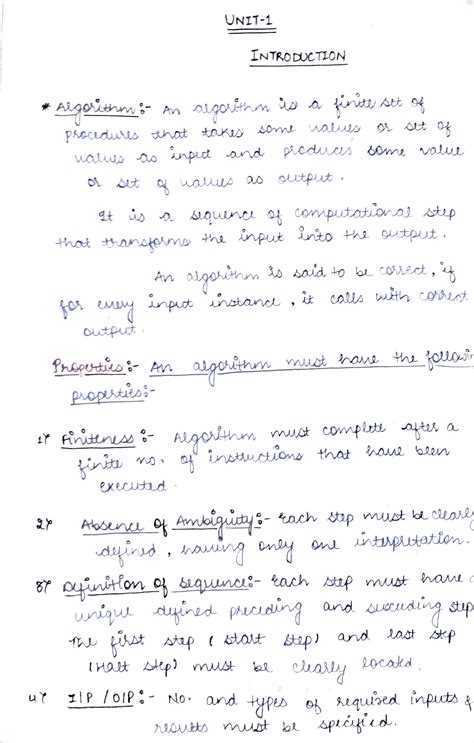 UNIT-1
INTRODUCTION
* Algorithm :- An algorithm is a finite set of
procedures that takes some values or set of
values as input and produces some value
or set of values as output.
It is a sequence of computational step
that transforms the input into the output.
An algorithm is said to be correct, if
for every input instance, it calls with correct
output.
Properties :- An algorithm must have the followin
properties:-
1> Finiteness :- Algorithm must complete after a
finite no. of instructions that have been
executed.
2> Absence of Ambiguity :- Each step must be clearly
defined, having only one interpretation.
3> Definition of sequence :- Each step must have a
unique defined preceding and succeding step
The first step (start step) and last step
(Halt step) must be clearly located.
4> I/P /O/P :- No. and types of required inputs &
results must be specified.